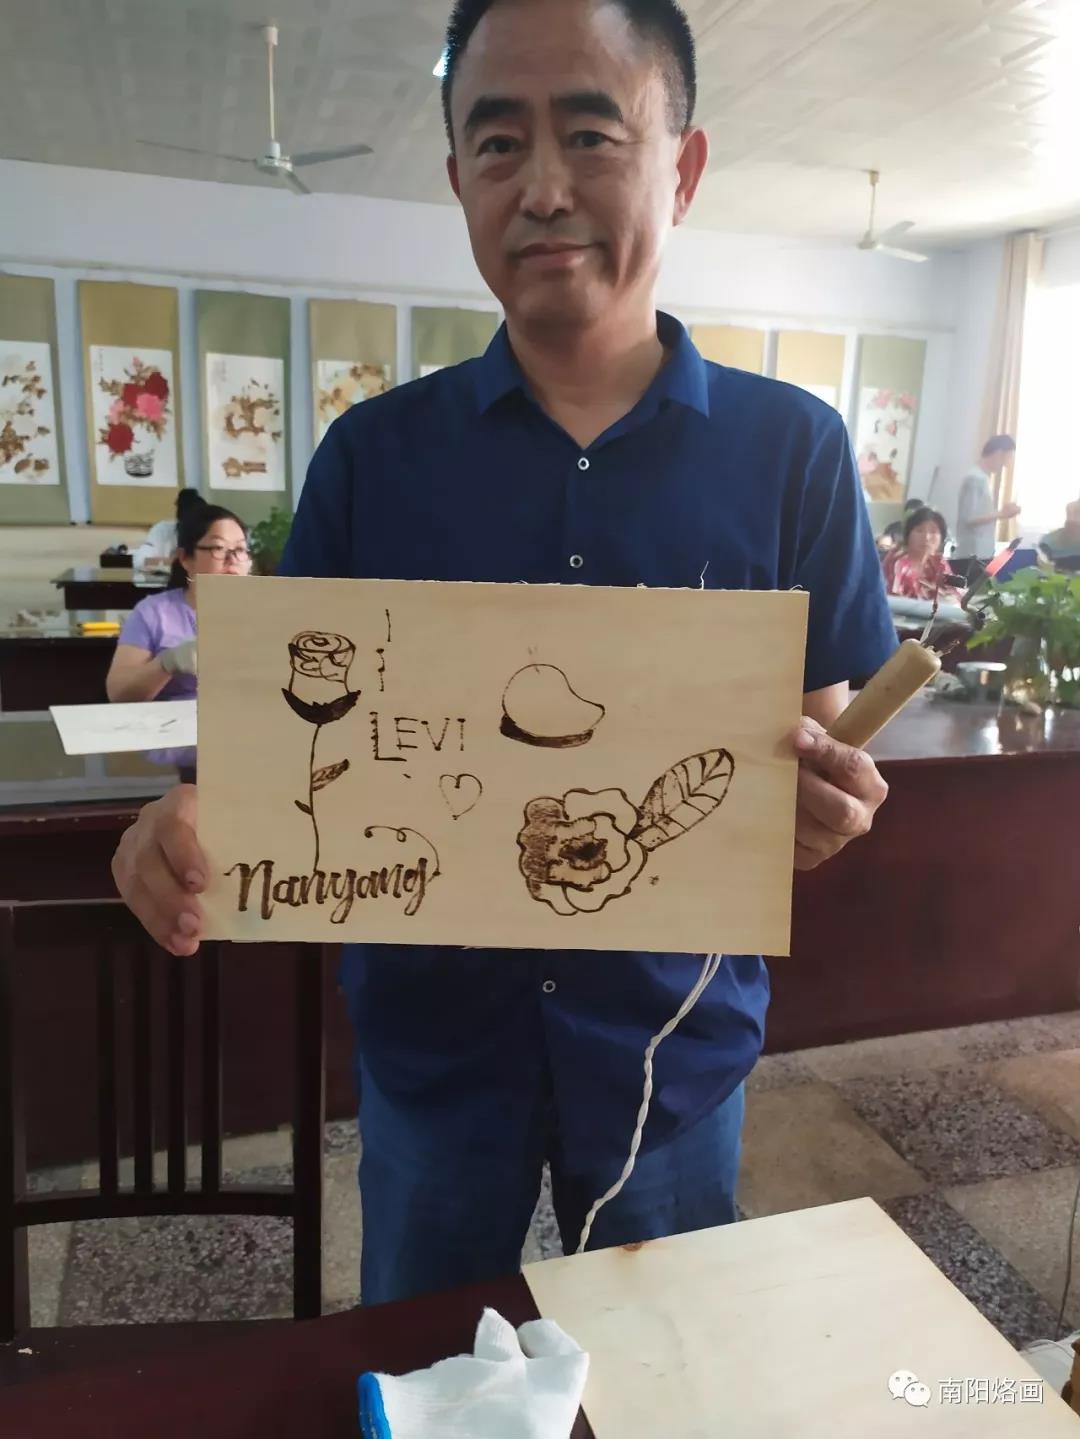 LEVI
Nanyang
南阳烙画